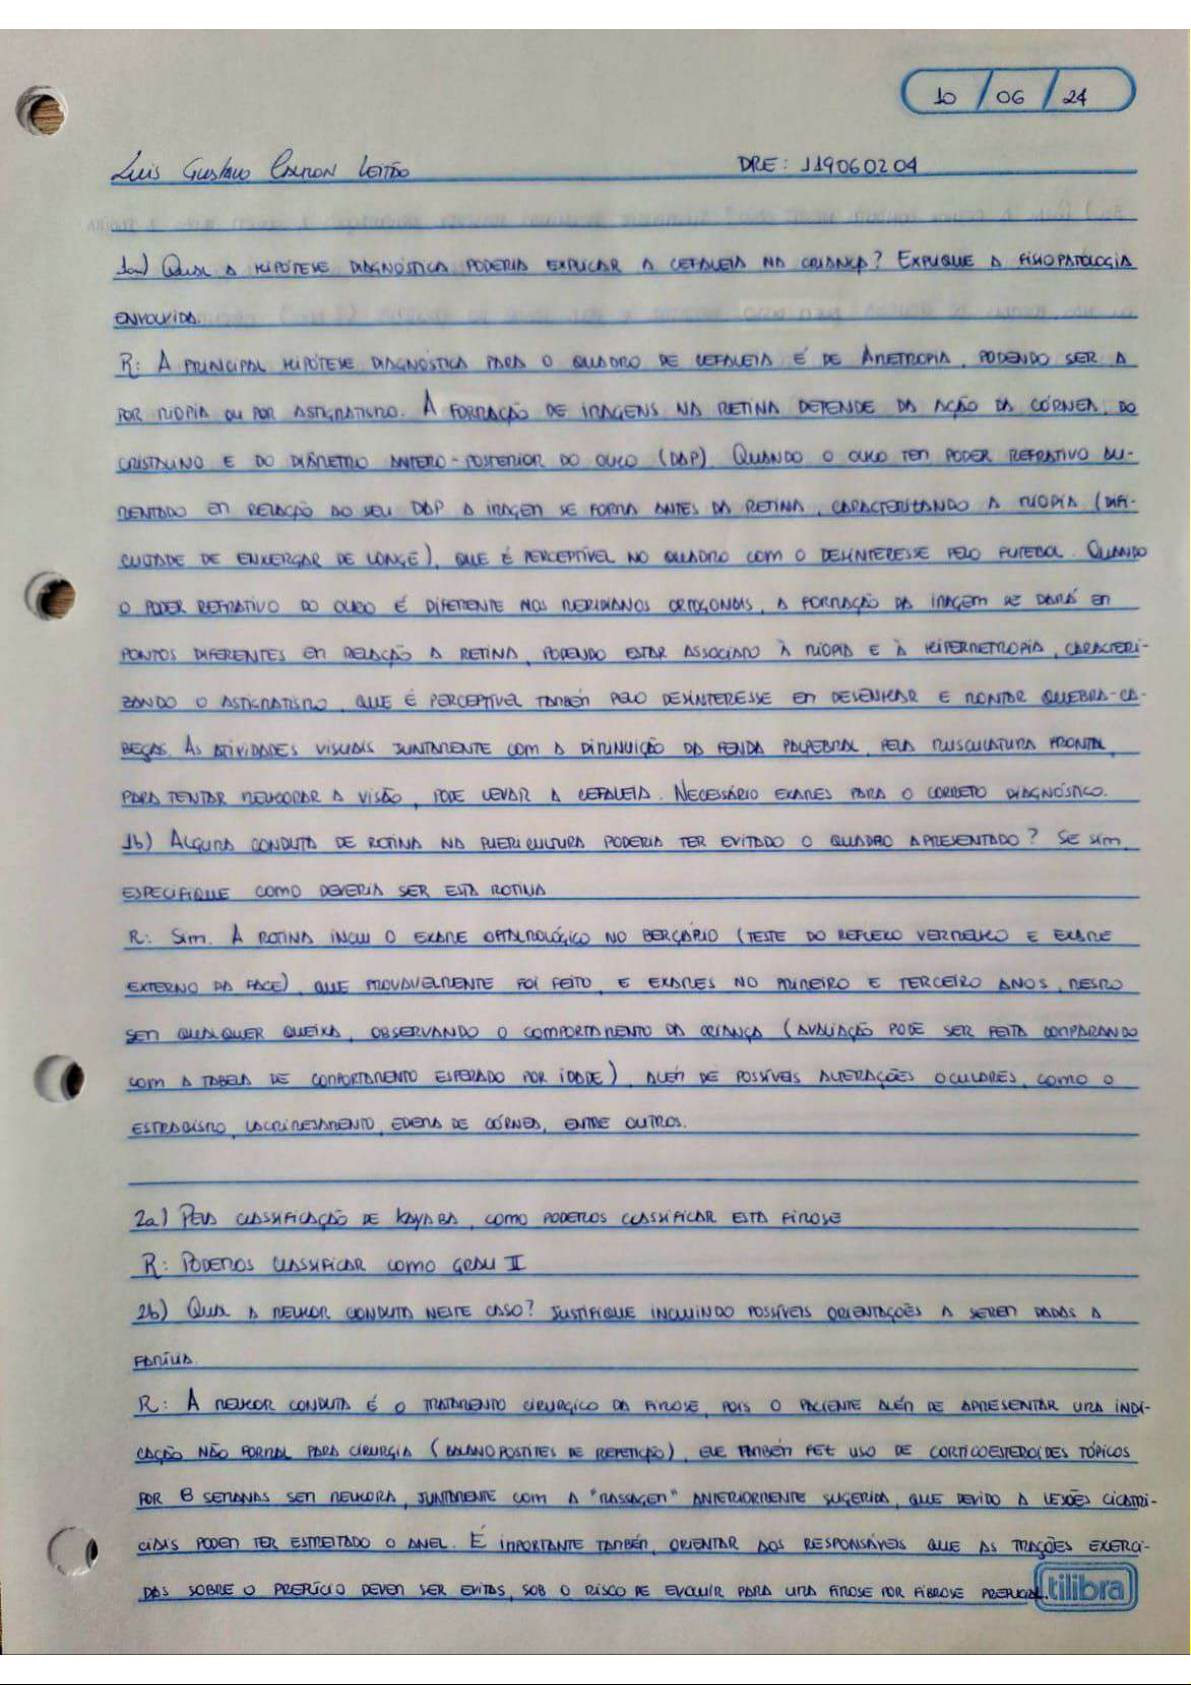 10 / 06 / 24
Luis Gustavo Leitão DRE: 119060204
1a) Qual a hipótese diagnóstica poderia explicar a cefaleia na criança? Explique a fisiopatologia
envolvida.
R: A principal hipótese diagnóstica para o quadro de cefaleia é de Ametropia, podendo ser a
por miopia ou por astigmatismo. A formação de imagens na retina depende da ação da córnea, do
cristalino e do diâmetro antero-posterior do olho (DAP). Quando o olho tem poder refrativo au-
mentado em relação ao seu DAP a imagem se forma antes da retina, caracterizando a miopia (difi-
culdade de enxergar de longe), que é perceptível no quadro com o desinteresse pelo futebol. Quando
o poder refrativo do olho é diferente nos meridianos ortogonais, a formação da imagem se dará em
pontos diferentes em relação a retina, podendo estar associado à miopia e à hipermetropia, caracteri-
zando o astigmatismo, que é perceptível também pelo desinteresse em desenhar e montar quebra-ca-
beças. As atividades visuais juntamente com a diminuição da fenda palpebral, pela musculatura frontal,
para tentar melhorar a visão, pode levar a cefaleia. Necessário exames para o correto diagnóstico.
1b) Alguma conduta de rotina na puericultura poderia ter evitado o quadro apresentado? Se sim,
especifique como deveria ser esta rotina
R: Sim. A rotina inclui o exame oftalmológico no berçário (teste do reflexo vermelho e exame
externo da face), que provavelmente foi feito, e exames no primeiro e terceiro anos, mesmo
sem qualquer queixa, observando o comportamento da criança (avaliação pode ser feita comparando
com a tabela de comportamento esperado por idade), além de possíveis alterações oculares, como o
estrabismo, lacrimejamento, edema de córnea, entre outros.
2a) Pela classificação de Kayaba, como podemos classificar esta fimose
R: Podemos classificar como grau II
2b) Qual a melhor conduta neste caso? Justifique incluindo possíveis orientações a serem dadas a
família.
R: A melhor conduta é o tratamento cirurgico da fimose, pois o paciente além de apresentar uma indi-
cação não formal para cirurgia (balanopostites de repetição), ele também fez uso de corticoesteroídes tópicos
por 8 semanas sem melhora, juntamente com a "massagem" anteriormente sugerida, que devido a lesões cicatri-
ciais podem ter estreitado o anel. É importante também, orientar aos responsáveis que as trações exerci-
das sobre o prepúcio devem ser evitas, sob o risco de evoluir para uma fimose por fibrose prepucial.
tilibra